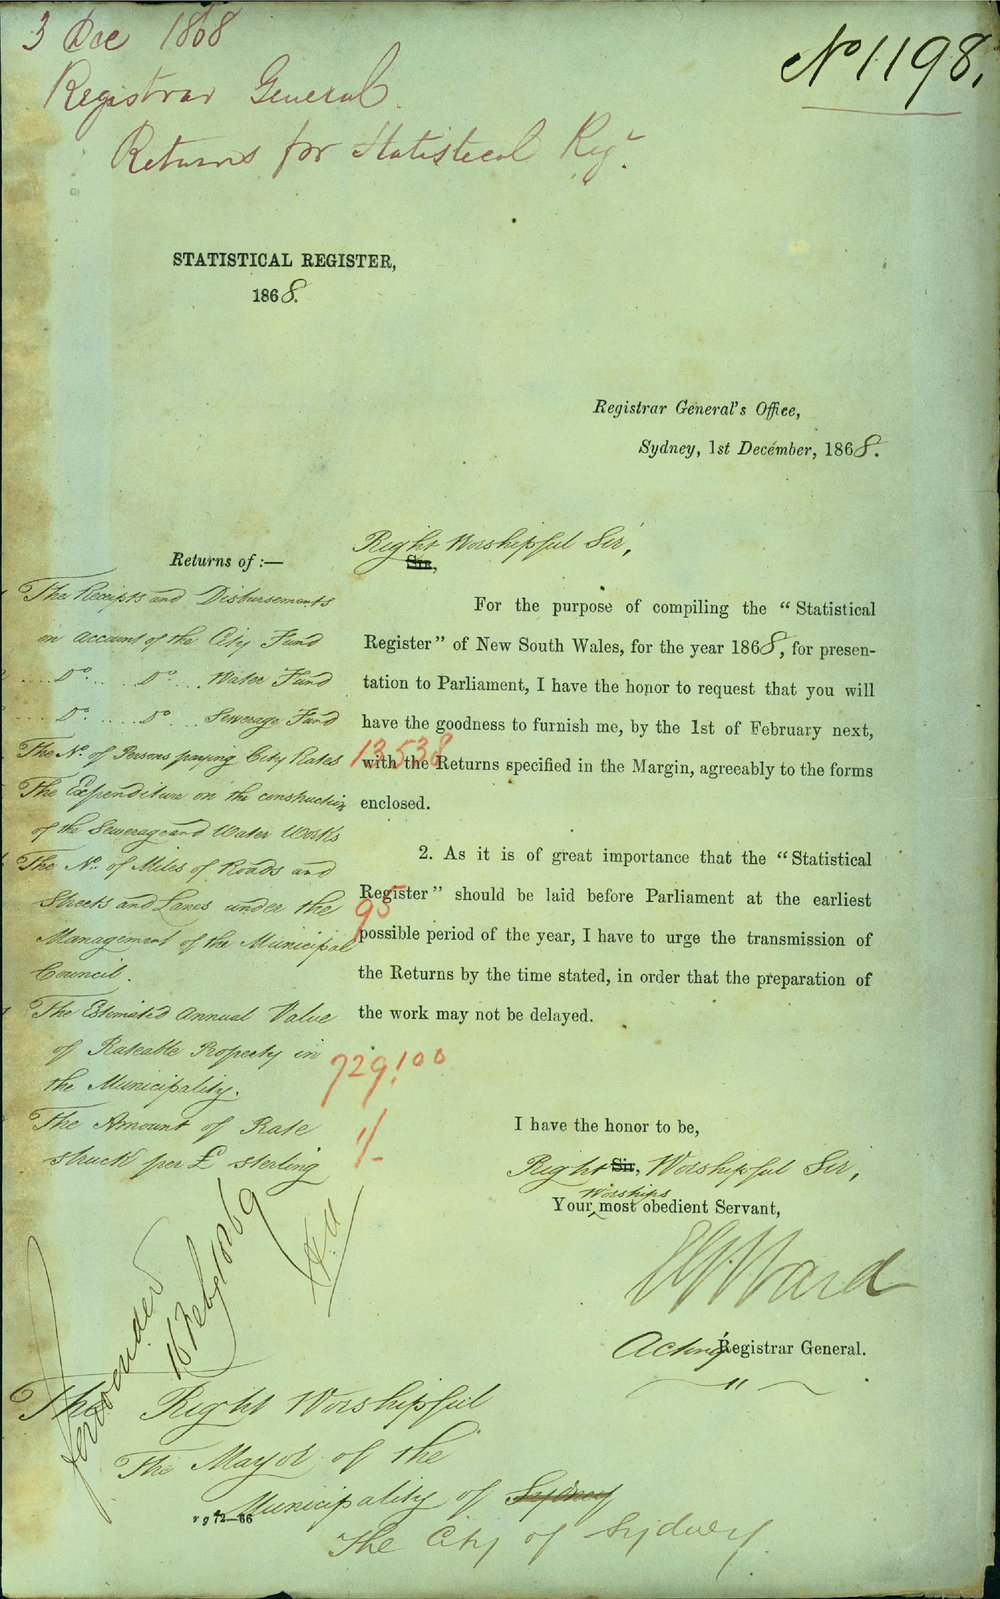 3 Dec 1868
No 1198.
Registrar General.
Returns for Statistical Regr.
STATISTICAL REGISTER,
1868.
Registrar General's Office,
Sydney, 1st December, 1868.
Right Worshipful Sir,
Sir,
Returns of :—
The Receipts and Disbursements
on account of the City Fund
Do. Do. Water Fund
Do. Do. Sewerage Fund
The No. of Persons paying City Rates
13538
The Expenditure on the construction
of the Sewerage and Water Works
The No. of Miles of Roads and
Streets and Lanes under the
95
Management of the Municipal
Council.
The Estimated Annual Value
of Rateable Property in
the Municipality.
729,100
The Amount of Rate
struck per £ sterling
1/-
For the purpose of compiling the “Statistical
Register” of New South Wales, for the year 1868, for presen-
tation to Parliament, I have the honor to request that you will
have the goodness to furnish me, by the 1st of February next,
with the Returns specified in the Margin, agreeably to the forms
enclosed.
2. As it is of great importance that the “Statistical
Register” should be laid before Parliament at the earliest
possible period of the year, I have to urge the transmission of
the Returns by the time stated, in order that the preparation of
the work may not be delayed.
I have the honor to be,
Right Sir, Worshipful Sir,
Worships
Your most obedient Servant,
Ward
Acting Registrar General.
Forwarded
16 Feby 1869
The Right Worshipful
The Mayor of the
Municipality of Sydney
r g 72—66
The City of Sydney